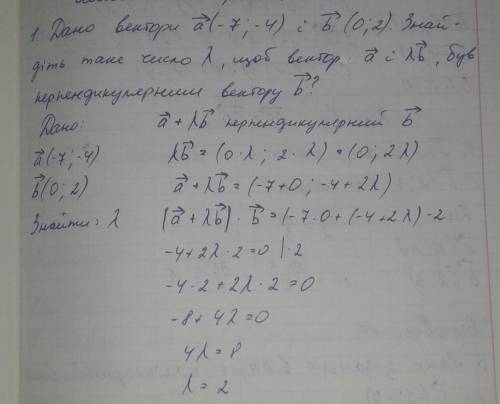 1. Дано вектори a⃗(-7;-4) і b⃗(0;2). Знай-
діть таке число λ, щоб вектор a⃗ і λb⃗, був
перпендикулярним вектору b⃗?
Дано: a⃗+λb⃗ перпендикулярний b⃗
a⃗(-7;-4) λb⃗=(0·λ; 2·λ)=(0;2λ)
b⃗(0;2) a⃗+λb⃗=(-7+0;-4+2λ)
Знайти: λ [a⃗+λb⃗]·b⃗=(-7·0+(-4+2λ)·2
-4+2λ·2=0 |·2
-4·2+2λ·2=0
-8+4λ=0
4λ=8
λ=2